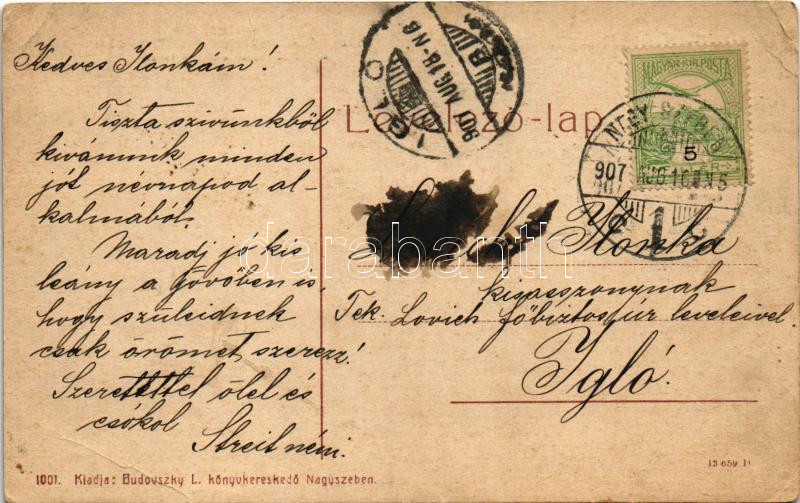 Kedves Ilonkám!
Tiszta szivünkből
kivánunk minden
jót névnapod al-
kalmából.
Maradj jó kis
leány a jövőben is,
hogy szüleidnek
csak örömet szerezz!
Szeretettel ölel és
csókol
Streit néni.
1001. Kiadja: Budovszky L. könyvkereskedő Nagyszeben.
IGLÓ
907 AUG 18 N6
B
Levelező-lap
MAGYAR KIR. POSTA
5
NAGY-SZEBEN
907 AUG 16
Ilonka
kisasszonynak
Tek. Lovich főbiztos úr leveleivel.
Igló.
13 659 D
darabanth